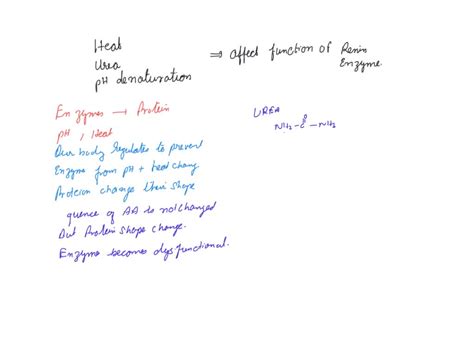 Heat
Urea
pH denaturation
⇒ affect function of Renin
Enzyme.
Enzymes → Protein
pH, Heat
Our body regulates to prevent
Enzyme from pH + heat chang
Protein change their shape
quence of AA is not changed
But Protein shape change.
Enzyme becomes dysfunctional.
UREA
O
NH2-C-NH2